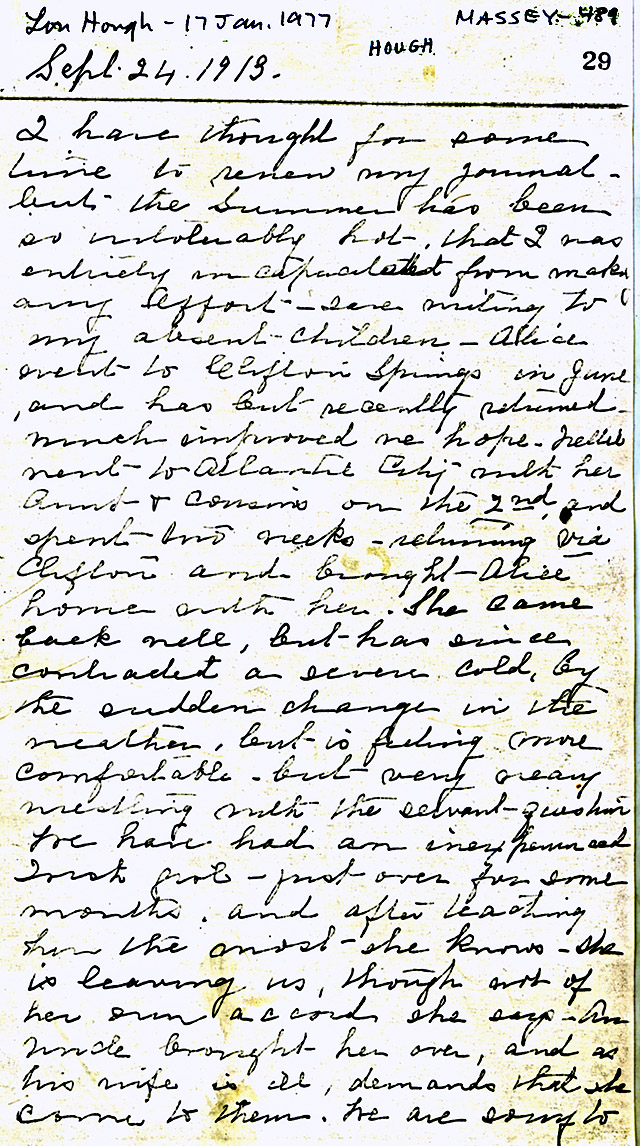 Lon Hough - 17 Jan. 1977 MASSEY - 484
HOUGH
Sept. 24. 1913. 29
I have thought for some
time to renew my journal -
but the Summer has been
so intolerably hot, that I was
entirely incapacitated from mak
any effort - save writing to
my absent children - Alice
went to Clifton Springs in June
, and has but recently returned -
much improved we hope. Nellie
went to Atlantic City with her
Aunt & cousins on the 2nd, and
spent two weeks - returning via
Clifton and brought Alice
home with her. She came
back well, but has since
contracted a severe cold, by
the sudden change in the
weather, but is feeling more
comfortable - but very weary
wrestling with the servant question
We have had an inexperienced
Irish girl - just over for some
months, and after teaching
her the most she knows - she
is leaving us, though not of
her own accord she says - An
uncle brought her over, and as
his wife is ill, demands that she
come to them. We are sorry to